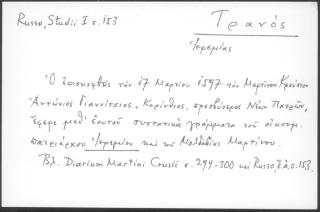 Russo, Studii I σ. 153
Τρανός
Ἱερεμίας
Ὁ ἐπισκεφθεὶς τὴν 17 Μαρτίου 1597 τὸν Μαρτῖνον Κρούσιον
Ἀντώνιος Γιαννίτσιος, Κορίνθιος, πρεσβύτερος Νέων Πατρῶν,
ἔφερε μεθ' ἑαυτοῦ συστατικὰ γράμματα τοῦ οἰκουμ.
πατριάρχου Ἱερεμίου καὶ τοῦ Μολδαβίας Μαρτίνου.
Βλ. Diarium Martini Crusii σ. 299-300 καὶ Russo, ἔ.ἀ. σ. 153.